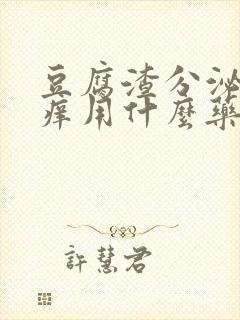 豆腐渣分泌
痒用什麼藥
許慧君